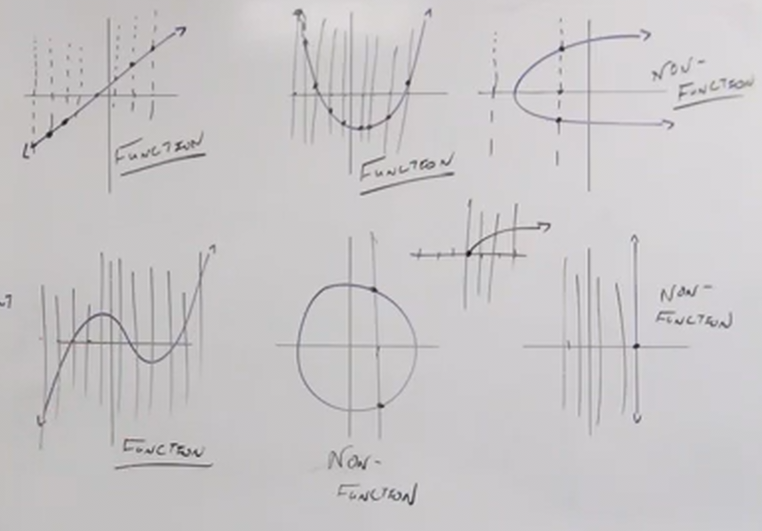 FUNCTION
FUNCTION
NON-
FUNCTION
FUNCTION
NON-
FUNCTION
NON-
FUNCTION